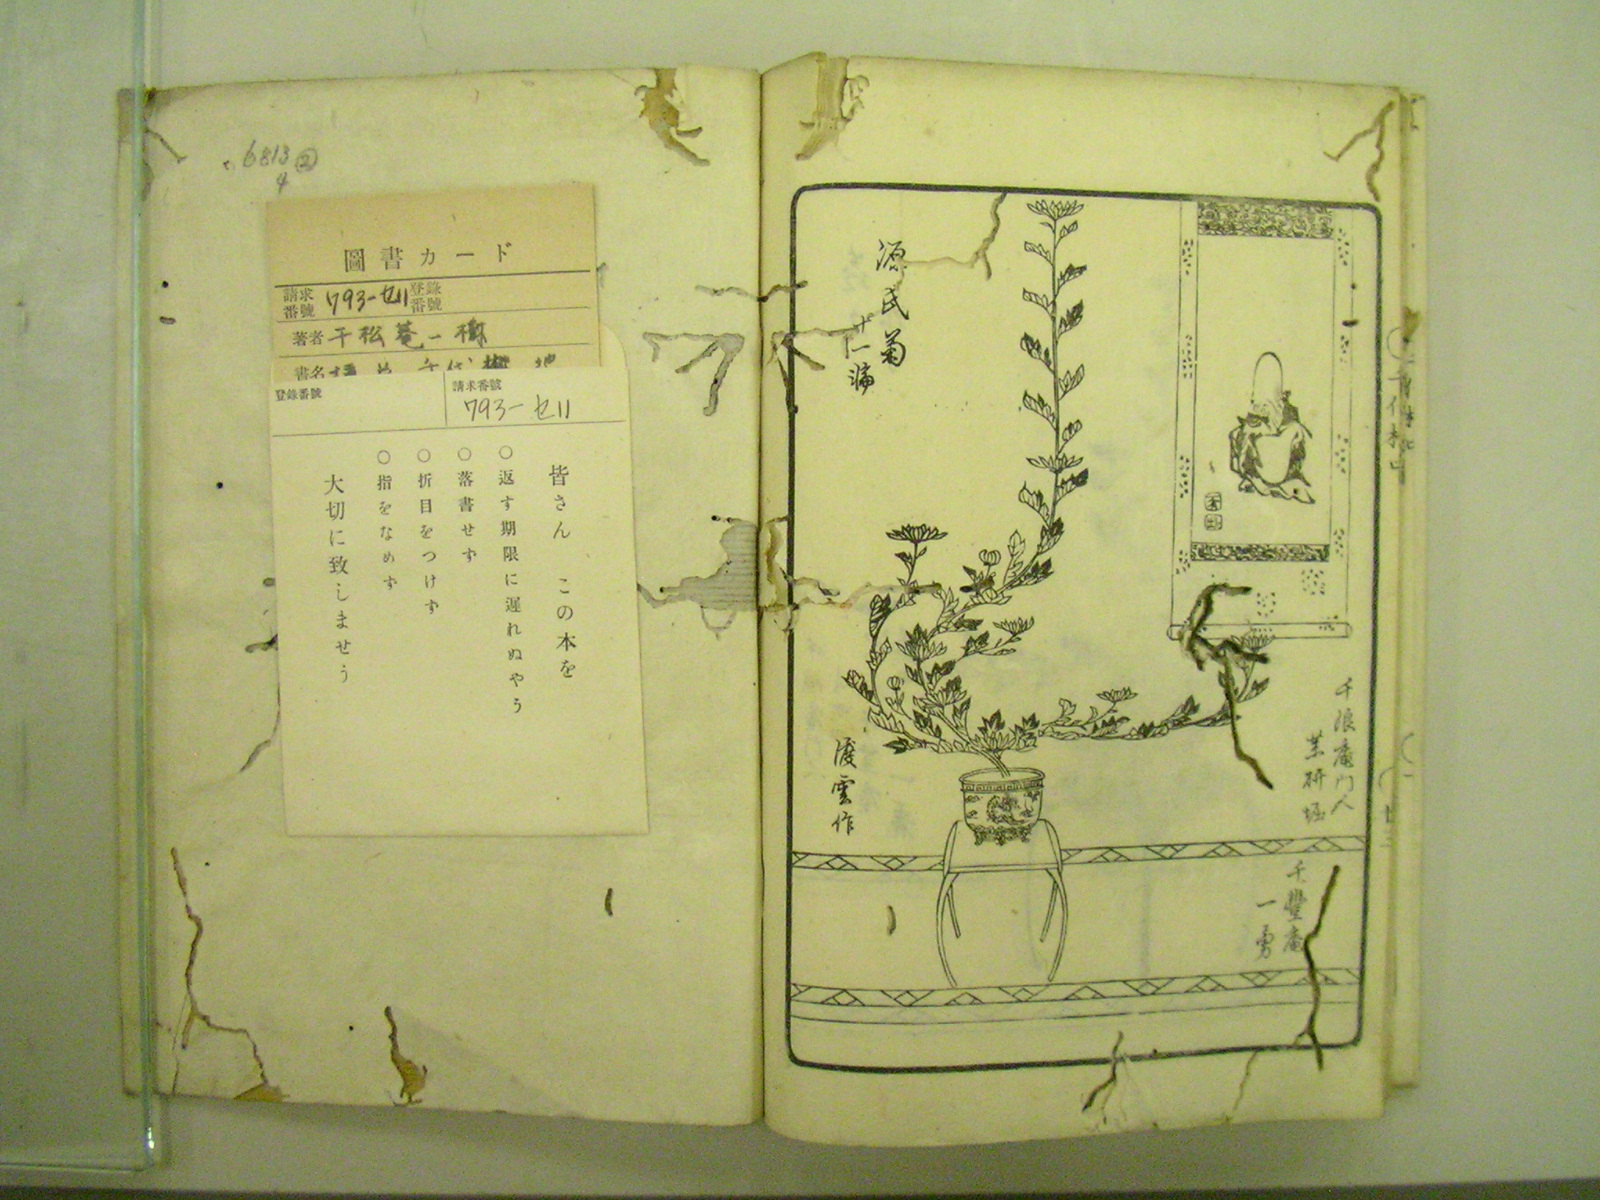 6813②
4
圖書カード
請求番號 793-セ11 登錄番號
著者 千松菴一樹
書名
登錄番號
請求番號
793-セ11
皆さん この本を
○返す期限に遅れぬやう
○落書せず
○折目をつけず
○指をなめず
大切に致しませう
千浪庵門人
千豐庵
一勇
源氏菊
凌雲作